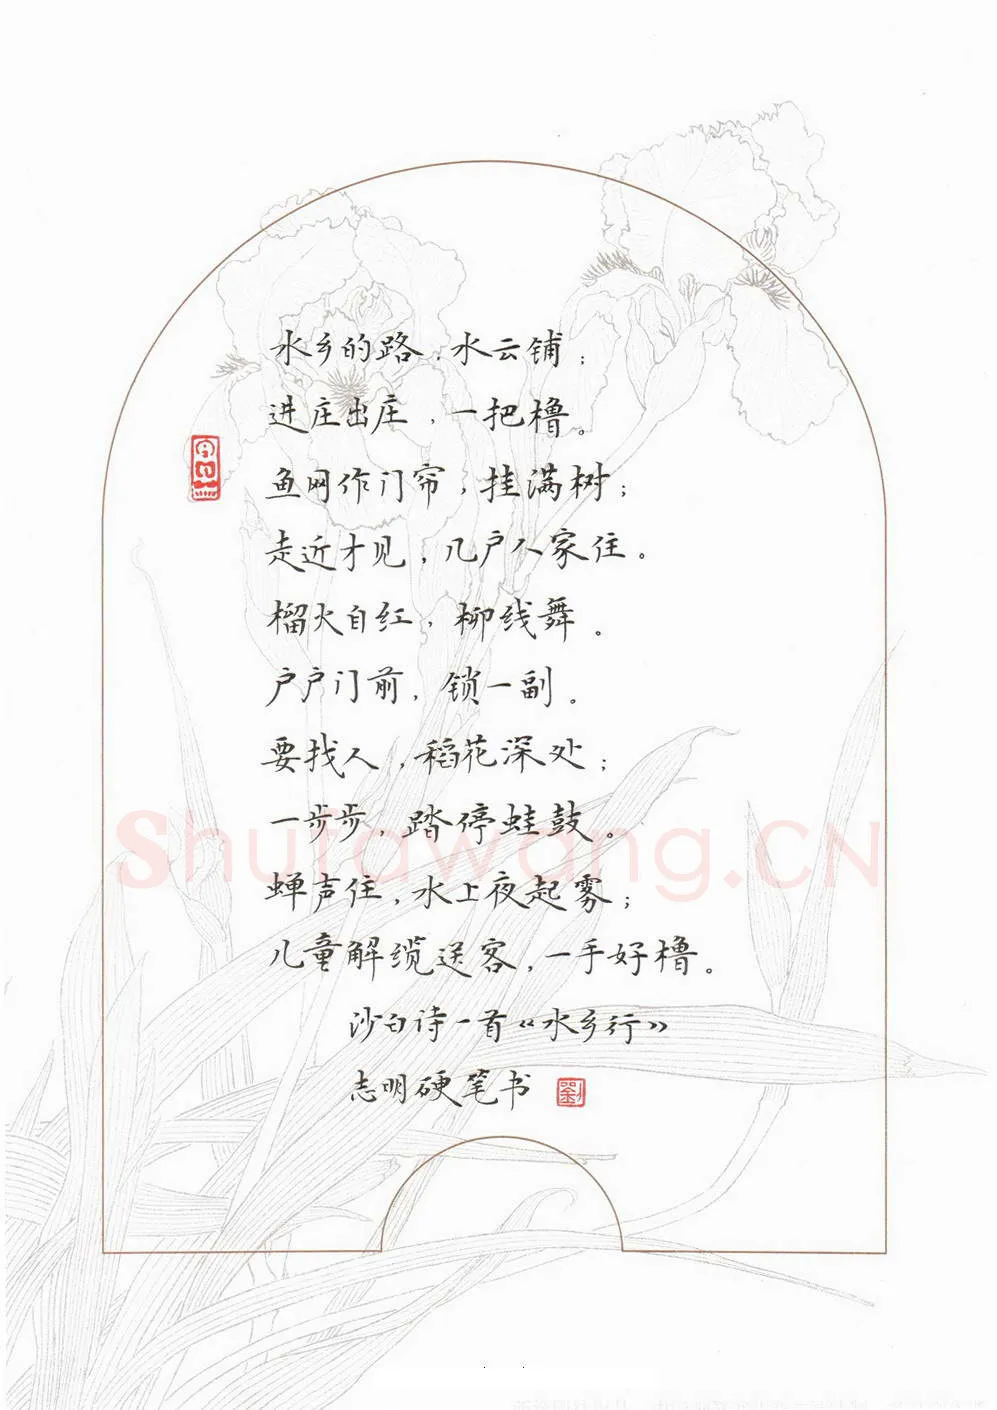 水乡的路，水云铺；
进庄出庄，一把橹。
鱼网作门帘，挂满树；
走近才见，几户人家住。
榴火自红，柳线舞。
户户门前，锁一副。
要找人，稻花深处；
一步步，踏停蛙鼓。
shufawang.CN
蝉声住，水上夜起雾；
儿童解缆送客，一手好橹。
沙白诗一首《水乡行》
志明硬笔书
劉